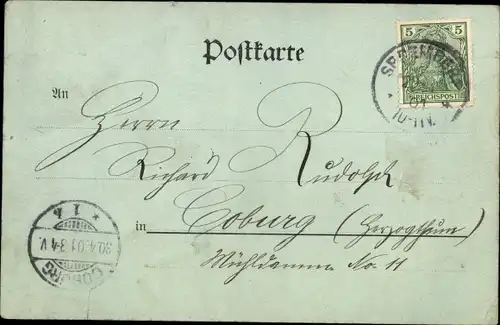 Postkarte
5 5
REICHSPOST
10-11V.
An
Herrn
Richard Rudolph
in Coburg (Herzogthum)
Mühldamm No. 11
* 1 b
30.4.01.3-4V.
COBURG